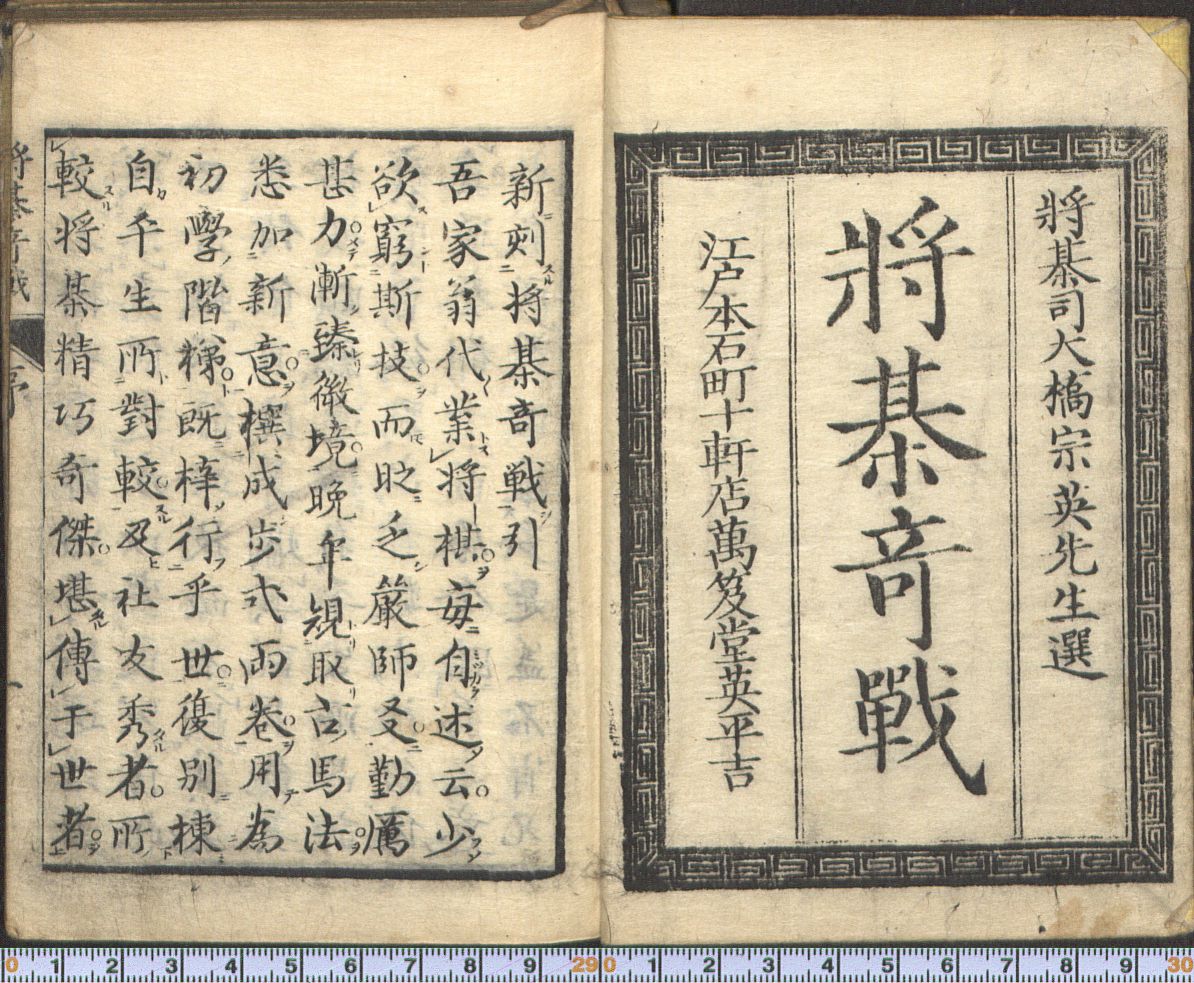 將棊司大橋宗英先生選
將棊竒戰
江戸本石町十軒店萬笈堂英平吉
新刻将棊竒戦引
吾家翁代業将棋毎自述云少
欲窮斯技而眂乏嚴師叉勤厲
甚力漸臻微境晩年規取古馬法
悉加新意撰成步式两卷用為
初學階梯既梓行乎世復别棟
自平生所對較及社友秀者所
較将棊精巧奇傑堪傳于世者
将棊竒戦
序
一